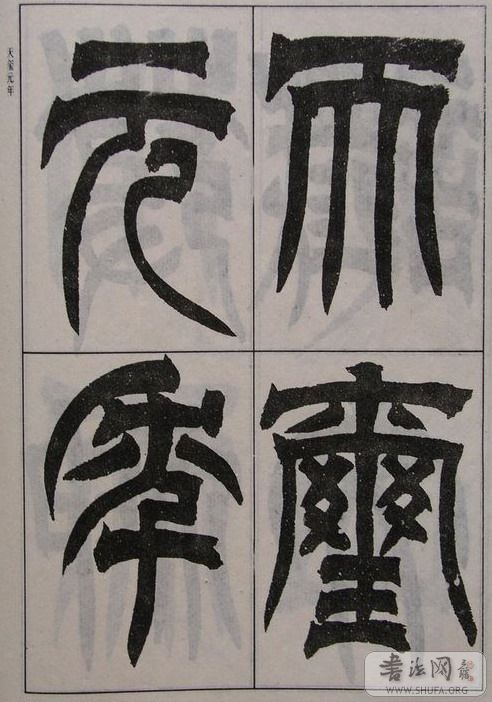 天璽
元年
天玺元年
書法网
WWW.SHUFA.ORG